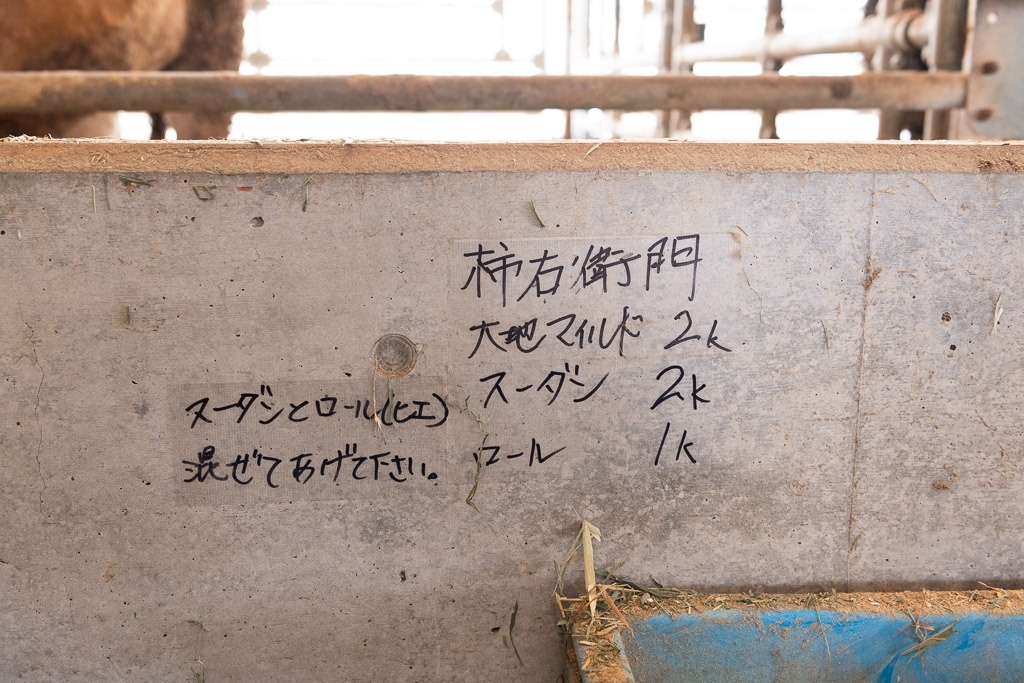 柿右衛門
大地マイルド 2k
スーダン 2k
ロール 1k
スーダンとロール(ヒエ)
混ぜてあげて下さい。